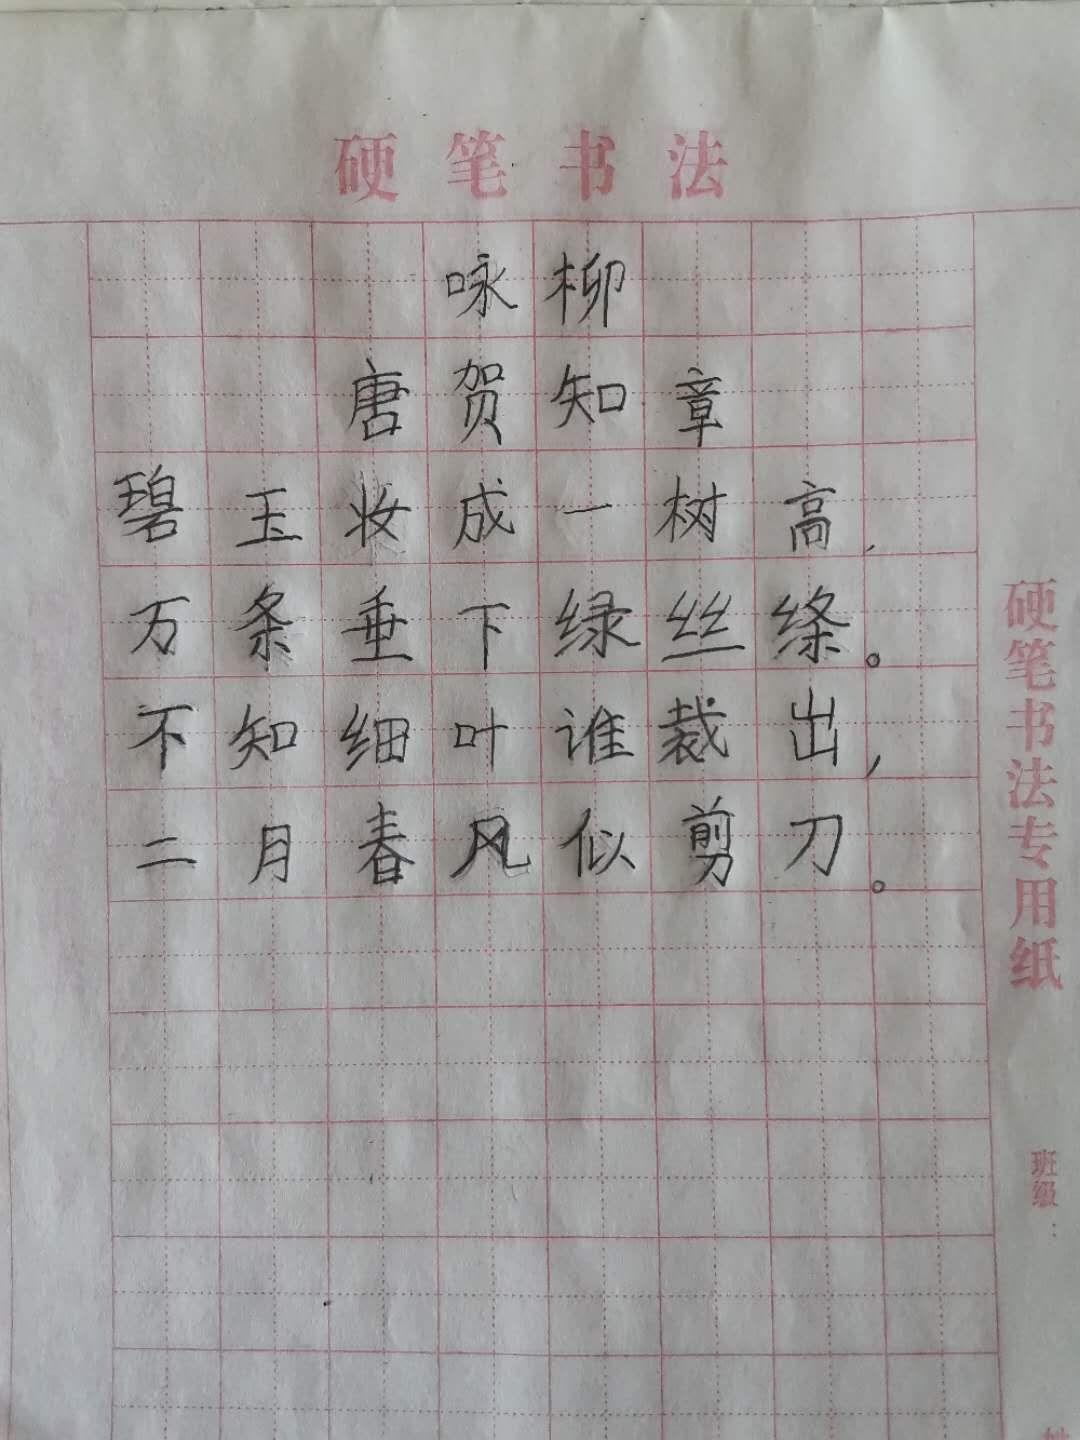 硬笔书法
咏柳
唐贺知章
碧玉妆成一树高,
万条垂下绿丝绦。
不知细叶谁裁出,
二月春风似剪刀。
硬笔书法专用纸
班级: